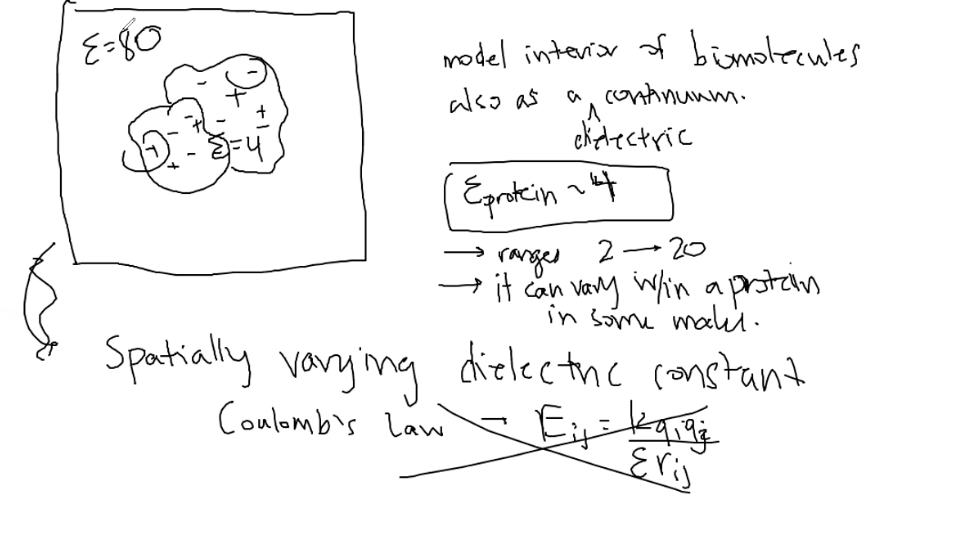 ε=80
- - + - + - + - ε=4 + - + -
model interior of biomolecules
also as a continuum.
dielectric
εprotein ~ 4
→ ranges 2 → 20
→ it can vary w/in a protein
in some model.
Spatially varying dielectric constant
Coulomb's law → Eij = kqiqj
εrij